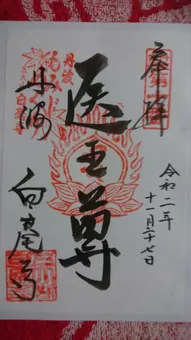 奉拝
令和二年
十一月二十七日
医王尊
丹波
丹波
白毫寺